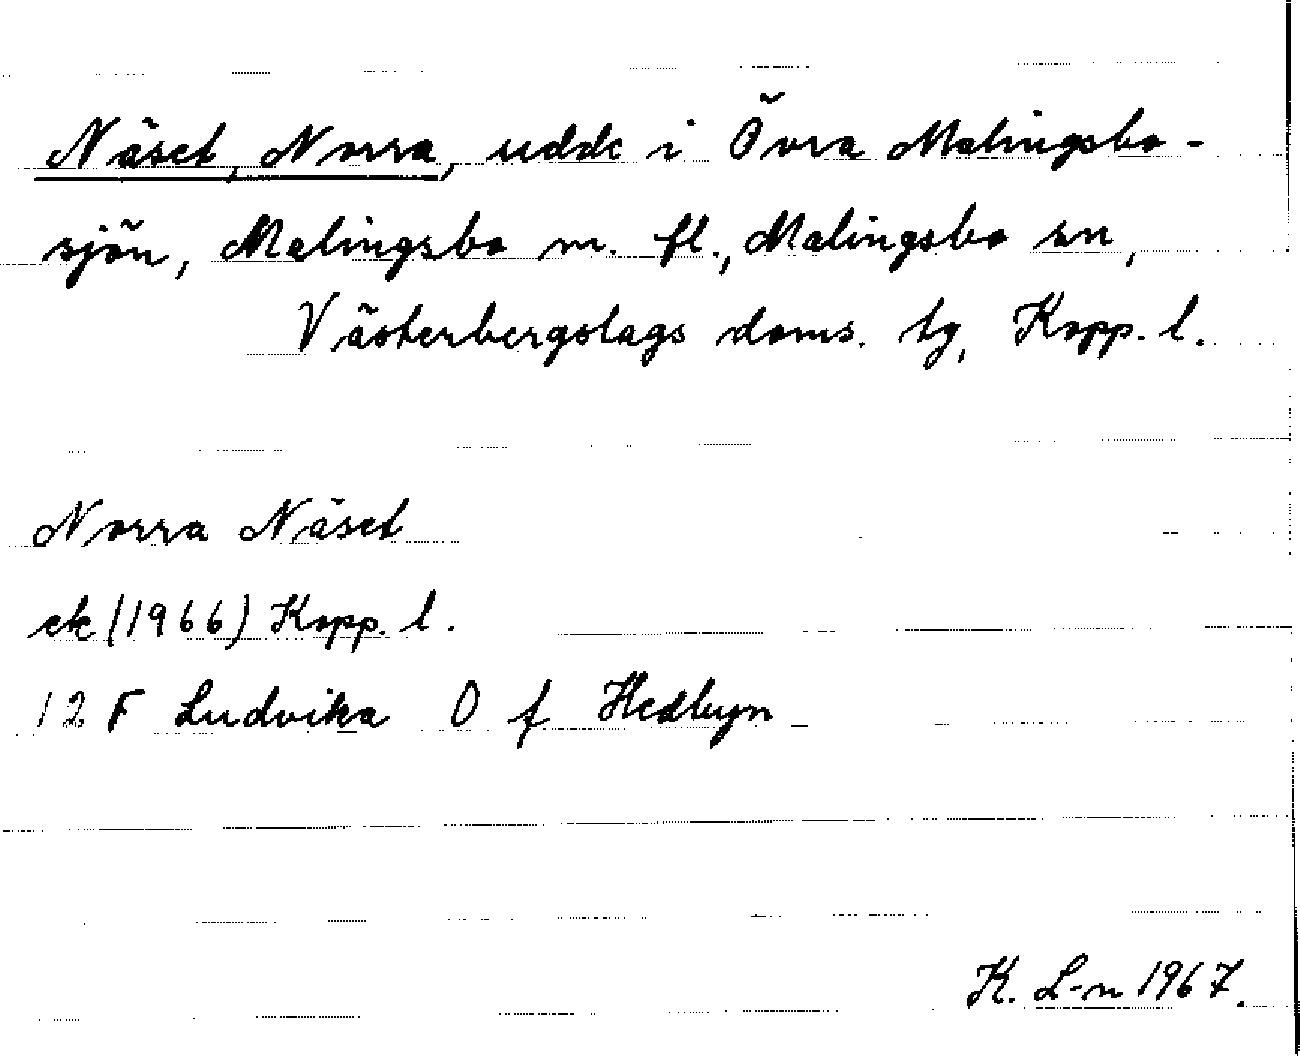 Näset, Norra, udde i Övra Malingsbo-
sjön, Malingsbo m. fl., Malingsbo sn,
Västerbergslags doms. tg, Kopp. l.
Norra Näset
ek (1966) Kopp. l.
12 F Ludvika 0 f Hedbyn
K. L-n 1967.